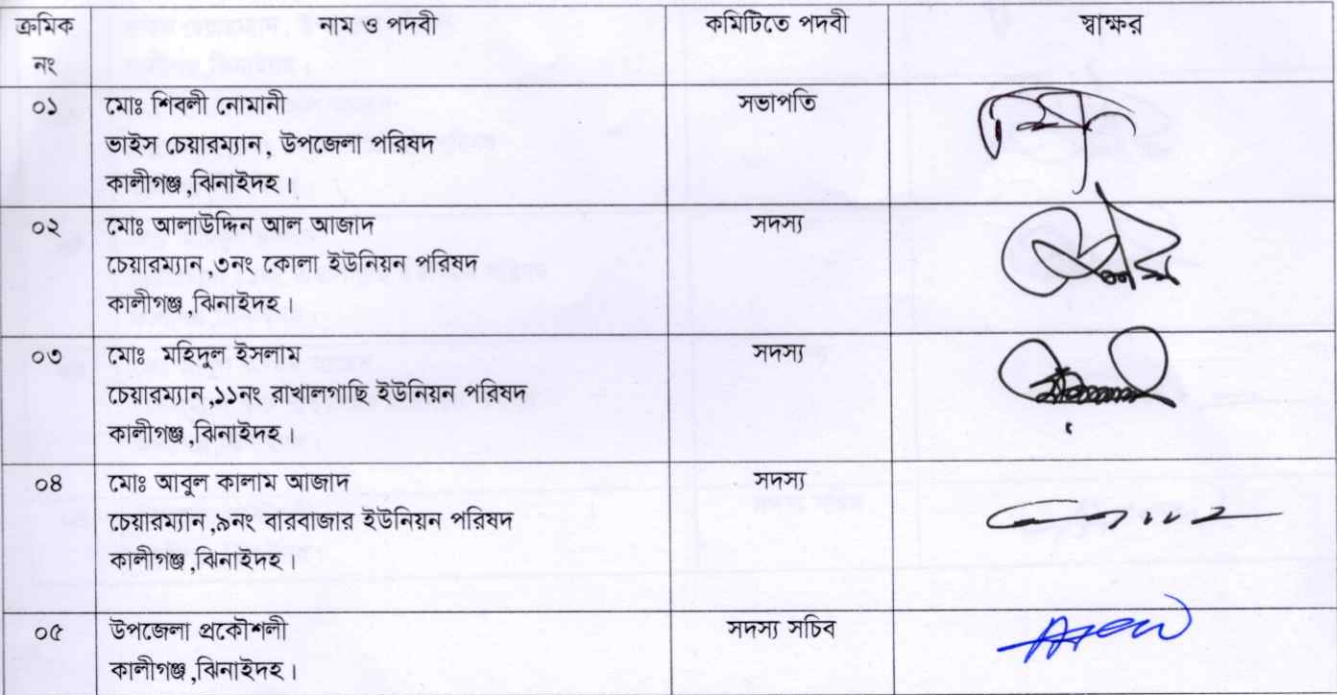 ক্রমিক নং নাম ও পদবী কমিটিতে পদবী স্বাক্ষর
০১ মোঃ শিবলী নোমানী সভাপতি
ভাইস চেয়ারম্যান, উপজেলা পরিষদ
কালীগঞ্জ,ঝিনাইদহ।
০২ মোঃ আলাউদ্দিন আল আজাদ সদস্য
চেয়ারম্যান,৩নং কোলা ইউনিয়ন পরিষদ
কালীগঞ্জ,ঝিনাইদহ।
০৩ মোঃ মহিদুল ইসলাম সদস্য
চেয়ারম্যান,১১নং রাখালগাছি ইউনিয়ন পরিষদ
কালীগঞ্জ,ঝিনাইদহ।
০৪ মোঃ আবুল কালাম আজাদ সদস্য
চেয়ারম্যান,৯নং বারবাজার ইউনিয়ন পরিষদ
কালীগঞ্জ,ঝিনাইদহ।
০৫ উপজেলা প্রকৌশলী সদস্য সচিব
কালীগঞ্জ,ঝিনাইদহ।